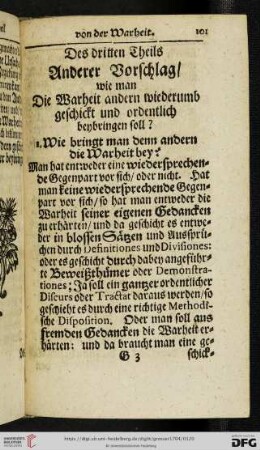 von der Warheit. 101
Des dritten Theils
Anderer Vorschlag/
wie man
Die Warheit andern wiederumb
geschickt und ordentlich
beybringen soll?
1. Wie bringt man denn andern
die Warheit bey?
Man hat entweder eine wiedersprechen-
de Gegenpart vor sich/ oder nicht. Hat
man keine wiedersprechende Gegen-
part vor sich/ so hat man entweder die
Warheit seiner eigenen Gedancken
zu erhärten/ und da geschicht es entwe-
der in blossen Sätzen und Aussprü-
chen durch Definitiones und Divisiones:
oder es geschicht durch dabey angeführ-
te Beweißthümer oder Demonstra-
tiones; Ja soll ein gantzer ordentlicher
Discurs oder Tractat daraus werden/ so
geschieht es durch eine richtige Methodi-
sche Disposition. Oder man soll aus
fremden Gedancken die Warheit er-
härten: und da braucht man eine ge-
G 3 schick-
DFG